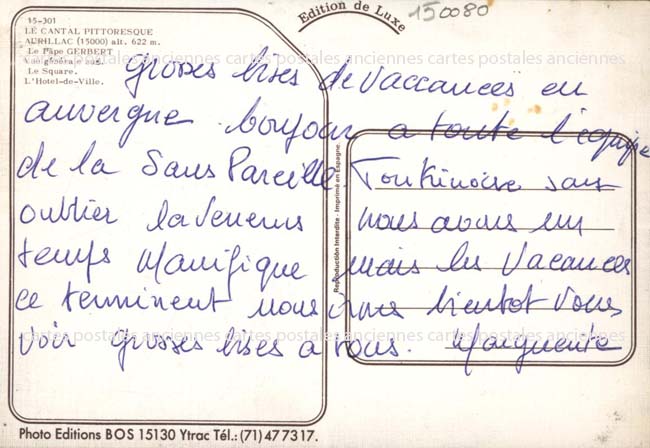 Edition de Luxe
150080
15-301
LE CANTAL PITTORESQUE
AURILLAC (15000) alt. 622 m.
Le Pape GERBERT
Vue générale
Le Square.
L'Hotel-de-Ville.
Grosses bises de vaccances en
auvergne bonjour a toute l'équipe
de la Sans Pareille Tonkinoise sans
oublier nous avons un
temps Manifique mais les vacances
ce terminent nous irons bientot vous
voir grosses bises a tous. Marguerite
Reproduction Interdite - Imprimé en Espagne.
cartes postales anciennes cartes postales anciennes cartes postales anciennes
cartes postales anciennes cartes postales anciennes cartes postales anciennes
Photo Editions BOS 15130 Ytrac Tél.: (71) 47 73 17.